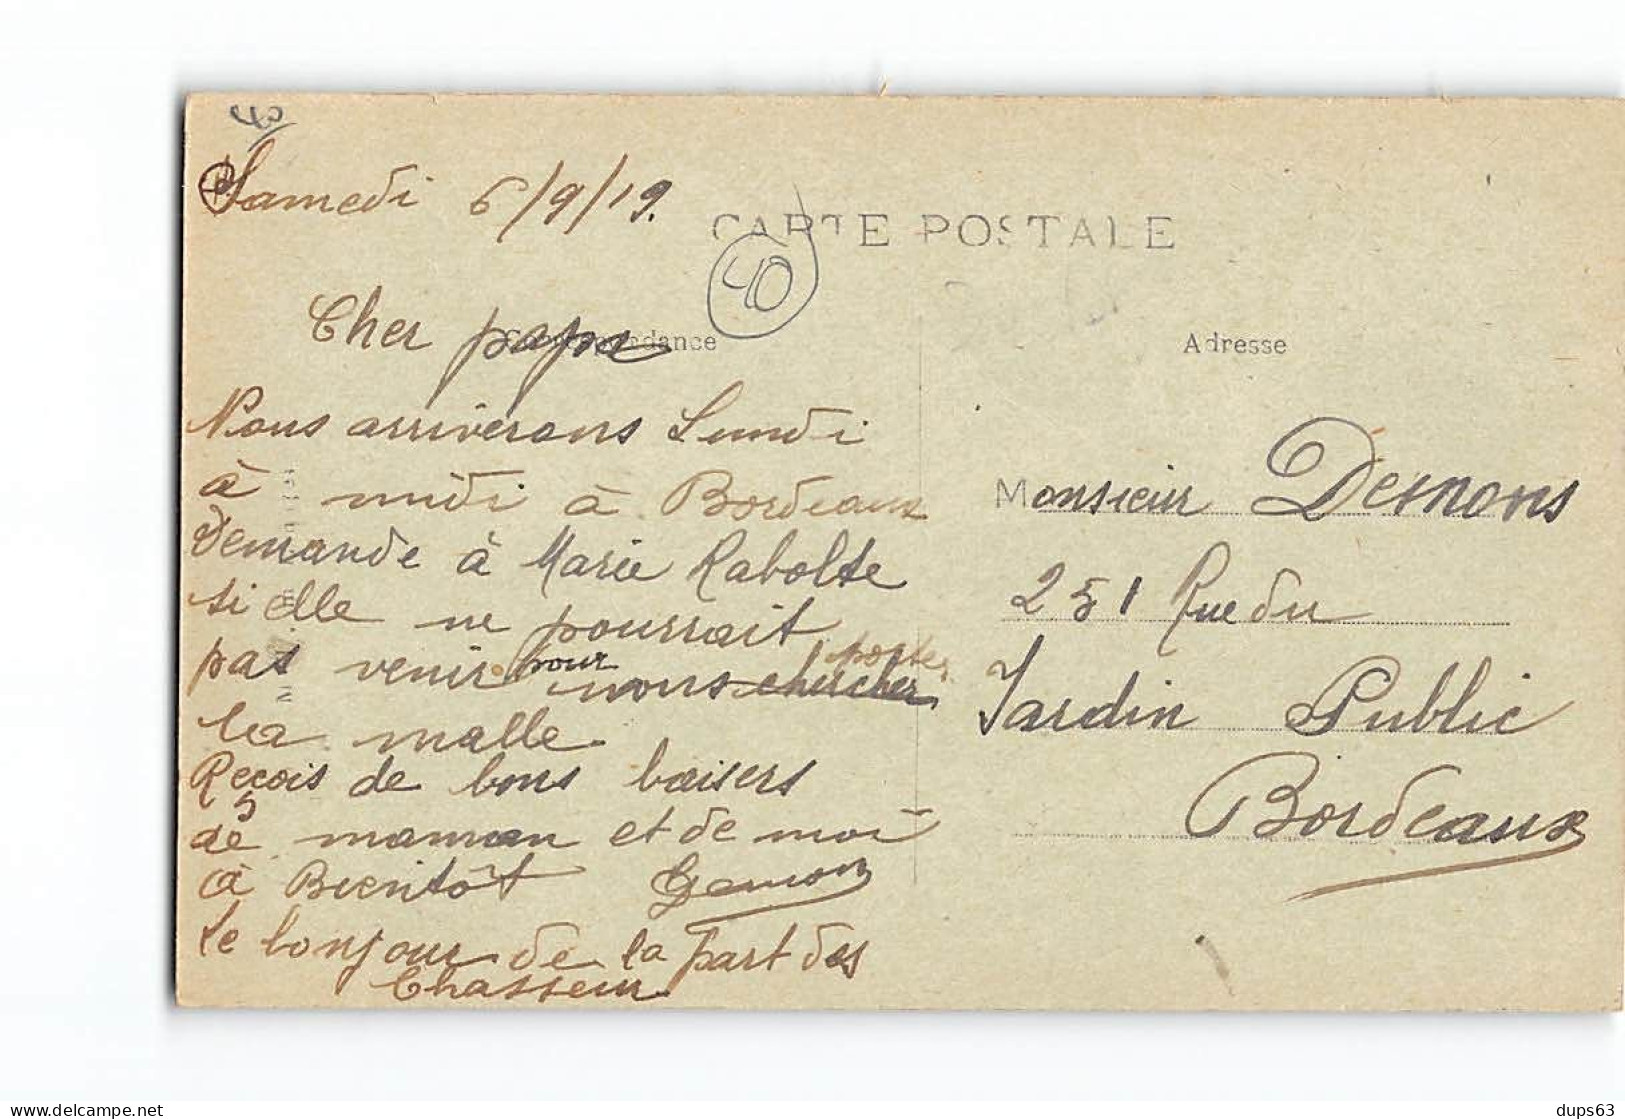 40
Samedi 6/9/19.
CARTE POSTALE
40
Cher papa
Correspondance
Nous arriverons Lundi
à midi à Bordeaux
demande à Marie Rabolte
si elle ne pourrait
pas venir pour nous chercher porter
la malle.
Reçois de bons baisers
de maman et de moi
à Bientôt
le bonjour de la part des
Chasseur
Adresse
Monsieur Desmons
251 Rue du
Jardin Public
Bordeaux
delcampe.net
dups63